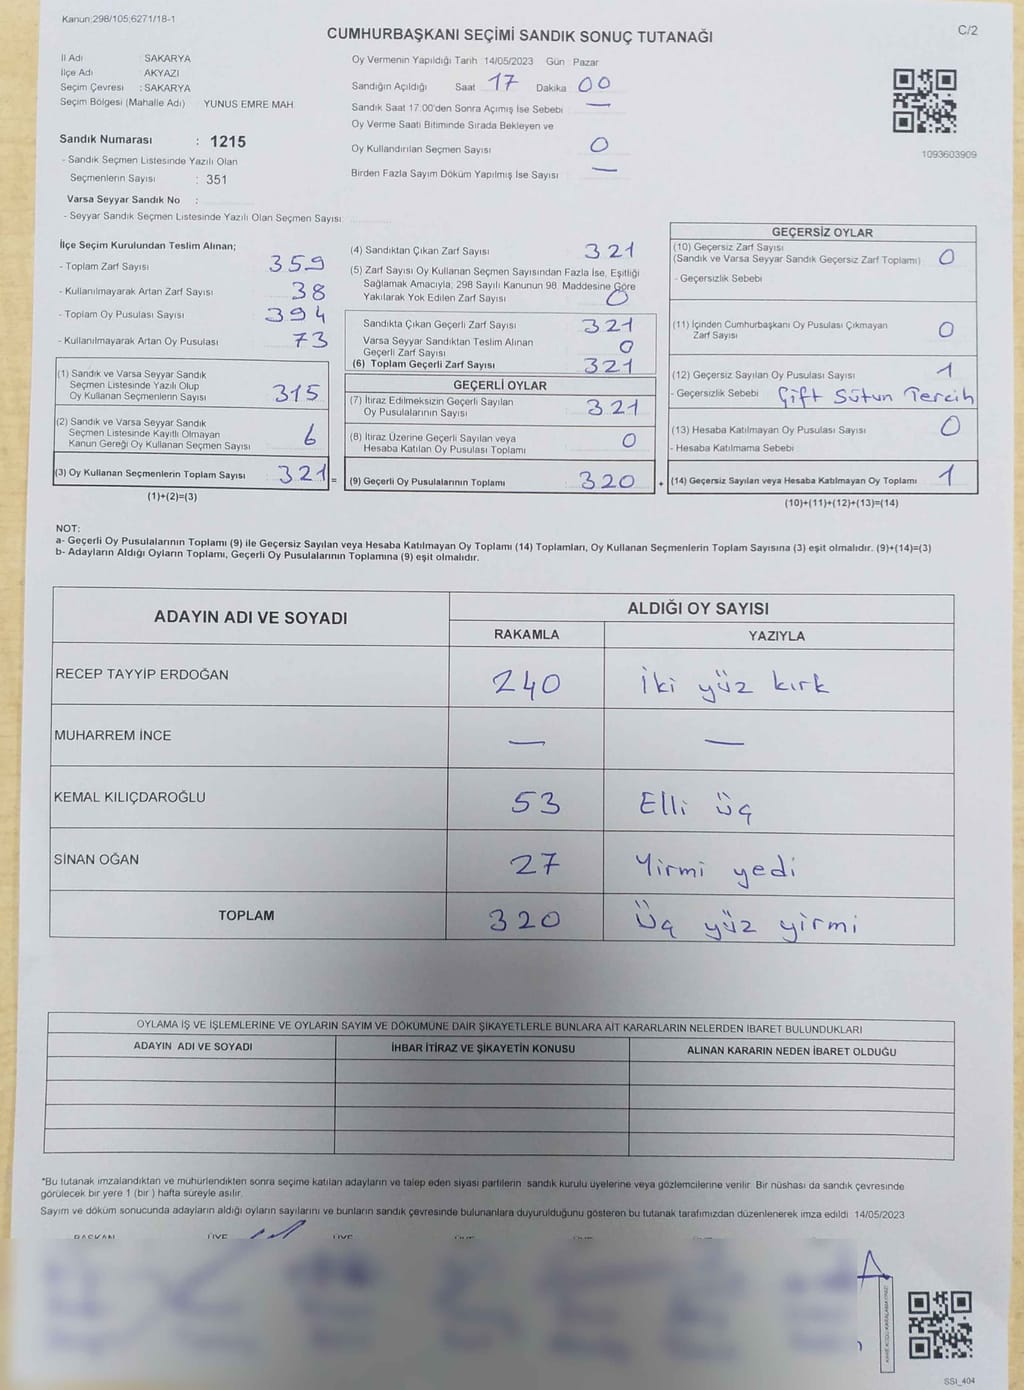 Kanun;298/105;6271/18-1
C/2
CUMHURBAŞKANI SEÇİMİ SANDIK SONUÇ TUTANAĞI
İl Adı : SAKARYA
İlçe Adı : AKYAZI
Seçim Çevresi : SAKARYA
Seçim Bölgesi (Mahalle Adı) YUNUS EMRE MAH.
Sandık Numarası : 1215
- Sandık Seçmen Listesinde Yazılı Olan
Seçmenlerin Sayısı : 351
Varsa Seyyar Sandık No :
- Seyyar Sandık Seçmen Listesinde Yazılı Olan Seçmen Sayısı:
Oy Vermenin Yapıldığı Tarih 14/05/2023 Gün Pazar
Sandığın Açıldığı Saat 17 Dakika 00
Sandık Saat 17.00'den Sonra Açımış İse Sebebi —
Oy Verme Saati Bitiminde Sırada Bekleyen ve
Oy Kullandırılan Seçmen Sayısı 0
Birden Fazla Sayım Döküm Yapılmış İse Sayısı —
1093603909
İlçe Seçim Kurulundan Teslim Alınan;
- Toplam Zarf Sayısı 359
- Kullanılmayarak Artan Zarf Sayısı 38
- Toplam Oy Pusulası Sayısı 394
- Kullanılmayarak Artan Oy Pusulası 73
(1) Sandık ve Varsa Seyyar Sandık
Seçmen Listesinde Yazılı Olup
Oy Kullanan Seçmenlerin Sayısı 315
(2) Sandık ve Varsa Seyyar Sandık
Seçmen Listesinde Kayıtlı Olmayan
Kanun Gereği Oy Kullanan Seçmen Sayısı 6
(3) Oy Kullanan Seçmenlerin Toplam Sayısı 321 =
(1)+(2)=(3)
(4) Sandıktan Çıkan Zarf Sayısı 321
(5) Zarf Sayısı Oy Kullanan Seçmen Sayısından Fazla İse, Eşitliği
Sağlamak Amacıyla, 298 Sayılı Kanunun 98. Maddesine Göre
Yakılarak Yok Edilen Zarf Sayısı 0
Sandıkta Çıkan Geçerli Zarf Sayısı 321
Varsa Seyyar Sandıktan Teslim Alınan
Geçerli Zarf Sayısı 0
(6) Toplam Geçerli Zarf Sayısı 321
GEÇERLİ OYLAR
(7) İtiraz Edilmeksizin Geçerli Sayılan
Oy Pusulalarının Sayısı 321
(8) İtiraz Üzerine Geçerli Sayılan veya
Hesaba Katılan Oy Pusulası Toplamı 0
(9) Geçerli Oy Pusulalarının Toplamı 320 +
GEÇERSİZ OYLAR
(10) Geçersiz Zarf Sayısı
(Sandık ve Varsa Seyyar Sandık Geçersiz Zarf Toplamı) 0
- Geçersizlik Sebebi
(11) İçinden Cumhurbaşkanı Oy Pusulası Çıkmayan
Zarf Sayısı 0
(12) Geçersiz Sayılan Oy Pusulası Sayısı 1
- Geçersizlik Sebebi Çift Sütun Tercih
(13) Hesaba Katılmayan Oy Pusulası Sayısı 0
- Hesaba Katılmama Sebebi
(14) Geçersiz Sayılan veya Hesaba Katılmayan Oy Toplamı 1
(10)+(11)+(12)+(13)=(14)
NOT:
a- Geçerli Oy Pusulalarının Toplamı (9) ile Geçersiz Sayılan veya Hesaba Katılmayan Oy Toplamı (14) Toplamları, Oy Kullanan Seçmenlerin Toplam Sayısına (3) eşit olmalıdır. (9)+(14)=(3)
b- Adayların Aldığı Oyların Toplamı, Geçerli Oy Pusulalarının Toplamına (9) eşit olmalıdır.
ADAYIN ADI VE SOYADI
ALDIĞI OY SAYISI
RAKAMLA YAZIYLA
RECEP TAYYİP ERDOĞAN 240 İki yüz kırk
MUHARREM İNCE — —
KEMAL KILIÇDAROĞLU 53 Elli üç
SİNAN OĞAN 27 Yirmi yedi
TOPLAM 320 Üç yüz yirmi
OYLAMA İŞ VE İŞLEMLERİNE VE OYLARIN SAYIM VE DÖKÜMÜNE DAİR ŞİKAYETLERLE BUNLARA AİT KARARLARIN NELERDEN İBARET BULUNDUKLARI
ADAYIN ADI VE SOYADI İHBAR İTİRAZ VE ŞİKAYETİN KONUSU ALINAN KARARIN NEDEN İBARET OLDUĞU
*Bu tutanak imzalandıktan ve mühürlendikten sonra seçime katılan adayların ve talep eden siyasi partilerin sandık kurulu üyelerine veya gözlemcilerine verilir. Bir nüshası da sandık çevresinde
görülecek bir yere 1 (bir ) hafta süreyle asılır.
Sayım ve döküm sonucunda adayların aldığı oyların sayılarını ve bunların sandık çevresinde bulunanlara duyurulduğunu gösteren bu tutanak tarafımızdan düzenlenerek imza edildi. 14/05/2023
BAŞKAN ÜYE ÜYE
SSI_404